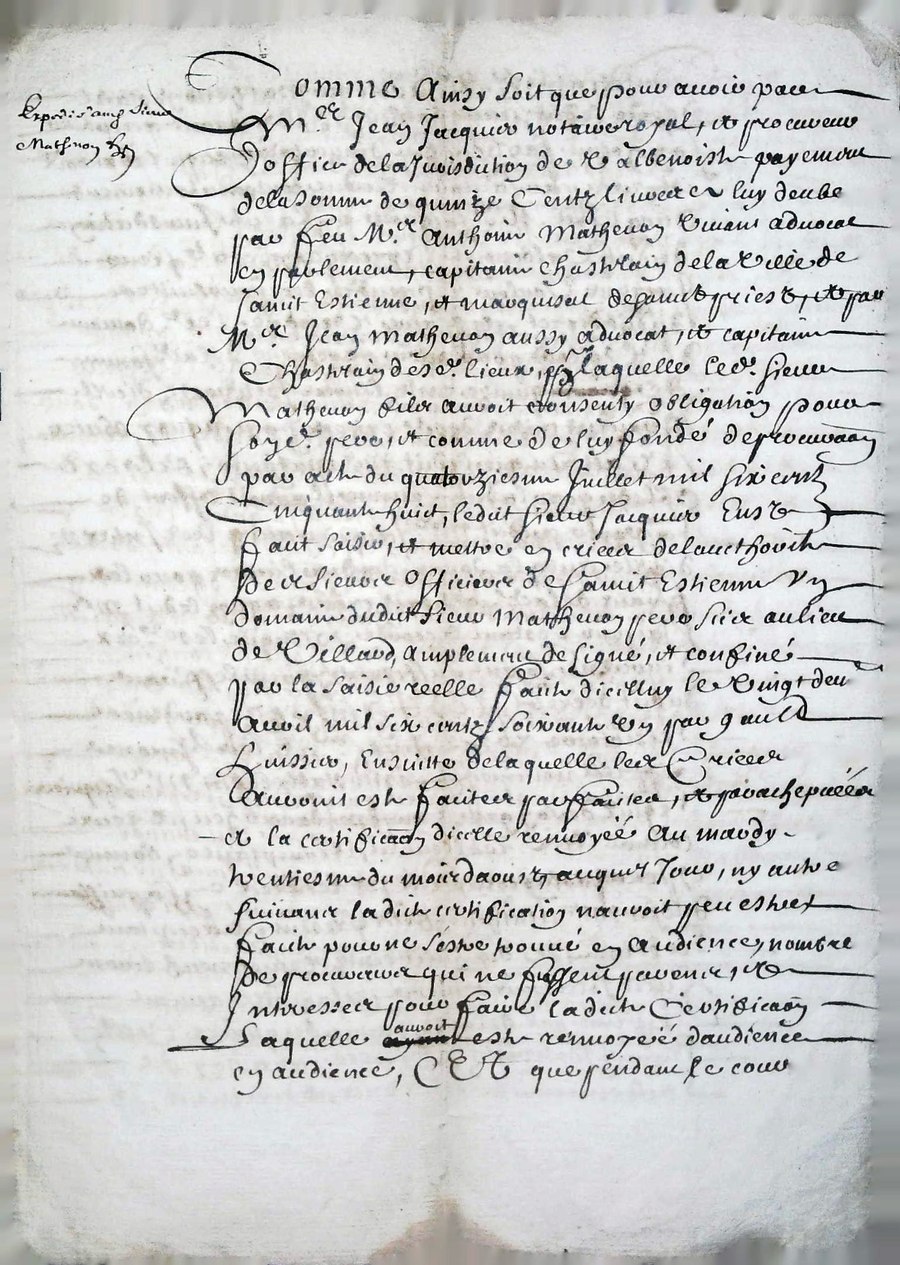 Expedié audit Sieur
Mathevon
Comme Ainsy soit que pour avoir par
Mre Jean Jacquier notaire royal, et procureur
d'office de la Jurisdiction de Valbenoiste payement
de la somme de quinze Centz livres a luy deube
par feu Mre Anthoine Mathevon vivant advocat
en parlement, capitaine chastelain de la Ville de
sainct Estienne, et marquisat de sainct priest, et par
Mre Jean Mathevon aussy advocat, et capitaine
Chastelain desd. lieux, laquelle led. sieur
Mathevon filz avoit consenty obligation pour
sond. pere, et comme de luy fondé de procuraon
par acte du quatorziesme Juillet mil six centz
Cinquante huict, ledit sieur Jacquier
faict saisir, et mettre en criees de lauthorité
de sieurs officiers de Sainct Estienne Un
domaine dudict sieur Mathevon pere scize au lieu
de Villard, amplement designé, et confiné
par la saisie reelle faicte dicelluy le vingt deux
avril mil six centz soixante un par gauld
huissier, En suitte de laquelle les Criees
auroint esté faites parfaites,
et la certificaon dicelle renvoyéé au mardy
trentiesme du mois daoust, auquel Jour, ny autre
suivant ladite certification nauroit peu estre
faicte pour ne sestre trouvé en audience, nombre
de procureurs qui ne fussent parens, et
Intressez pour faire ladicte Certificaon
Laquelle avoit esté renvoyéé d'audience
en audience, Et que pendant le cour